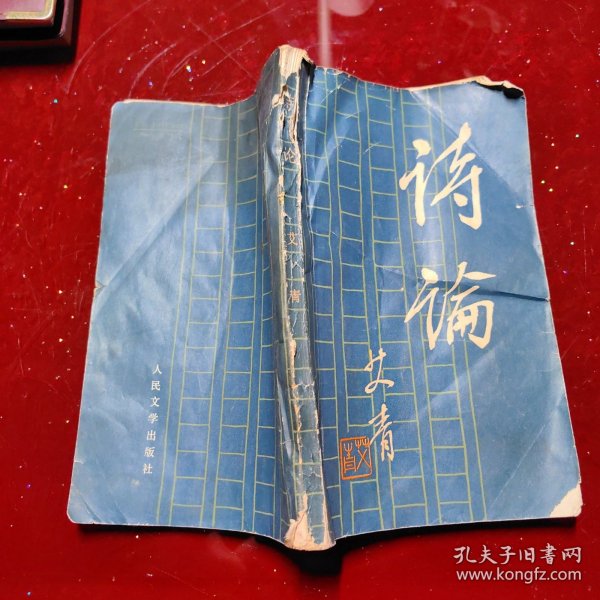 诗論
艾青
艾青
论
艾青
人民文学出版社
孔夫子旧書网
www.kongfz.com